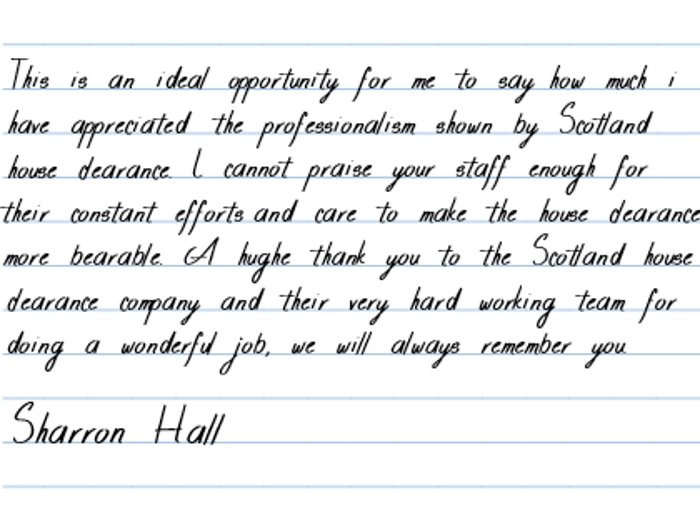 This is an ideal opportunity for me to say how much i
have appreciated the professionalism shown by Scotland
house clearance. I cannot praise your staff enough for
their constant efforts and care to make the house clearance
more bearable. A hughe thank you to the Scotland house
clearance company and their very hard working team for
doing a wonderful job, we will always remember you
Sharron Hall